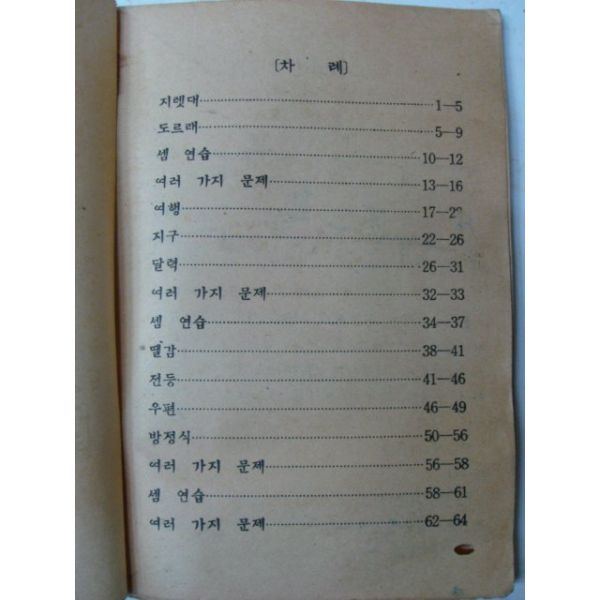 [차 례]
지렛대 1—5
도르래 5—9
셈 연습 10—12
여러 가지 문제 13—16
여행 17—22
지구 22—26
달력 26—31
여러 가지 문제 32—33
셈 연습 34—37
땔감 38—41
전등 41—46
우편 46—49
방정식 50—56
여러 가지 문제 56—58
셈 연습 58—61
여러 가지 문제 62—64